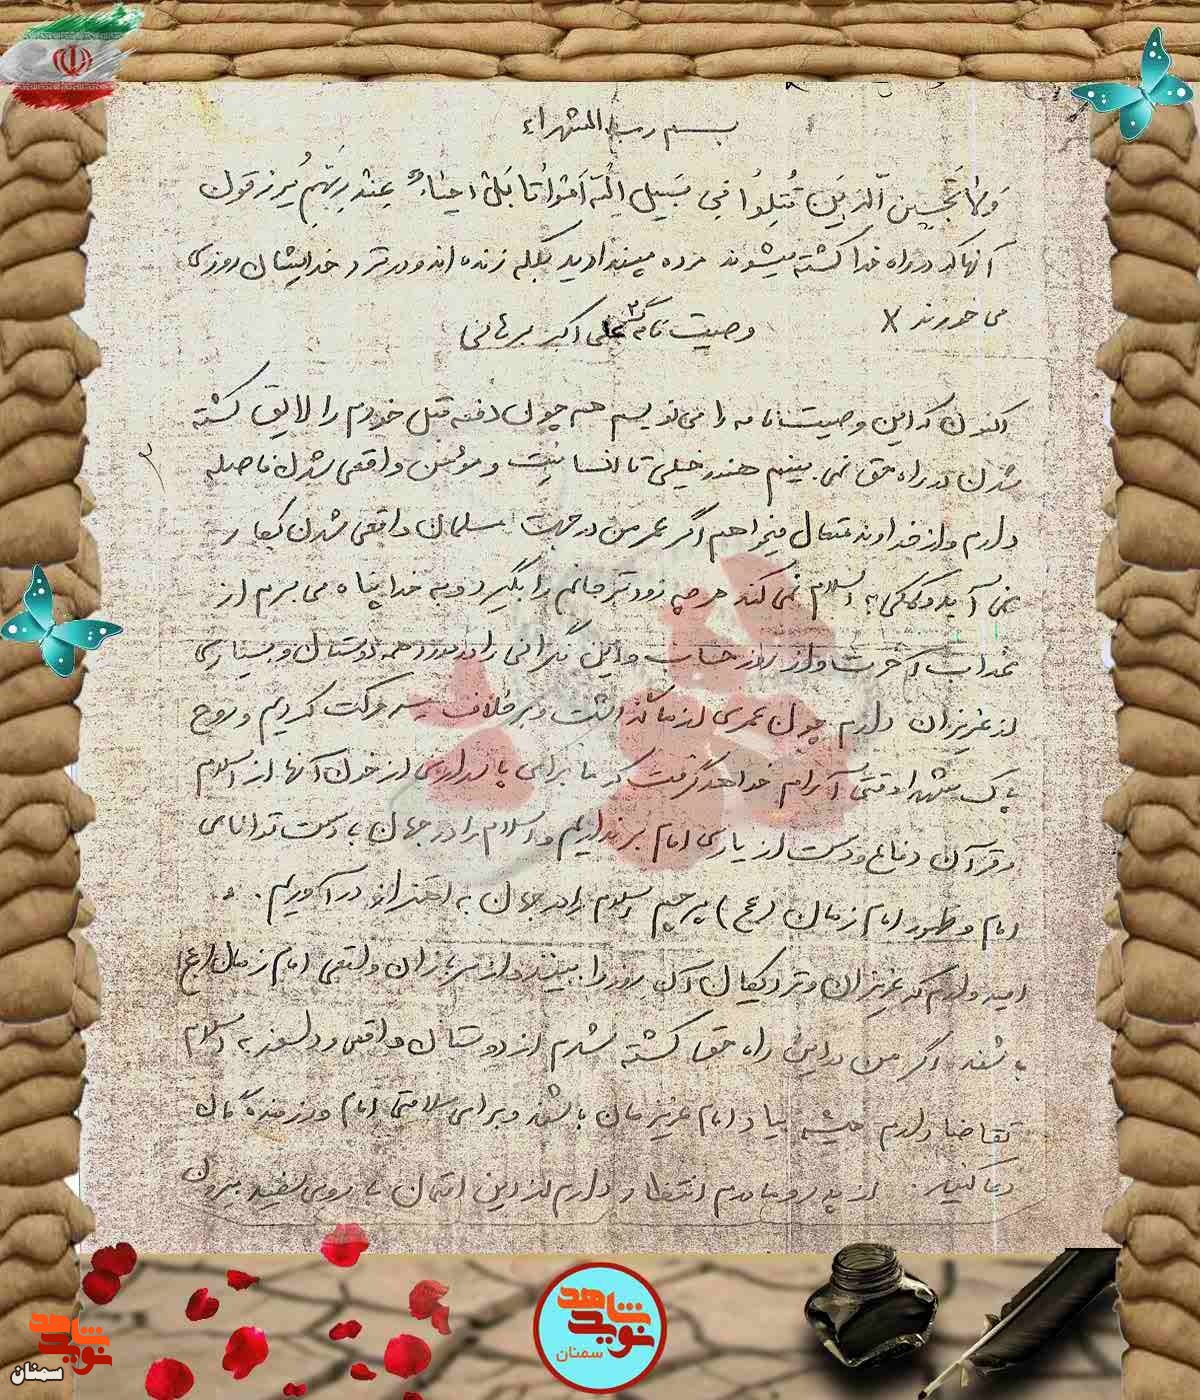 بسم رب الشهداء
وَلا تَحسَبَنَّ الَّذینَ قُتِلُوا فی سَبیلِ اللّه اَمواتا بَل اَحیاءٌ عِندَ رَبِّهِم یُرزَقون
آنها که در راه خدا کشته میشوند مرده مپندارید بلکه زنده اند و در نزد خدایشان روزی
می خورند X
وصیت نامه ۲ علی اکبر برهانی
اکنون که این وصیت نامه را می نویسم همچون دفعه قبل خودم را لایق کشته
۲
شدن در راه حق نمی بینم هنوز خیلی تا انسانیت و مؤمن واقعی شدن فاصله
دارم و از خداوند متعال میخواهم اگر عمر من در جهت مسلمان واقعی شدن بکار
نمی آید و کمکی به اسلام نمی کند هر چه زودتر جانم را بگیرد و به خدا پناه می برم از
عذاب آخرت و از روز حساب و این نگرانی را در مورد همه دوستان و بسیاری
از عزیزان دارم چون عمری از ما گذشت و بر خلاف حرکت کردیم و روح
پاک شهدا وقتی آرام خواهد گرفت که ما برای پاسداری از خون آنها از اسلام
و قرآن دفاع و دست از یاری امام برنداریم و اسلام را در جهان با دست توانای
امام و ظهور امام زمان (عج) پرچم اسلام را در جهان به اهتزاز در آوریم.
امیدوارم که عزیزان و نزدیکان آن روز را ببینند و از سربازان واقعی امام زمان (عج)
باشند. اگر من در این راه حق کشته شدم از دوستان واقعی و دلسوز به اسلام
تقاضا دارم همیشه بیاد امام عزیزمان باشند و برای سلامتی امام و رزمندگان
دعا کنید. از پدر و مادرم انتظار دارم از این امتحان با روی سفید بیرون
نوید شاهد
سمنان
نوید شاهد
سمنان